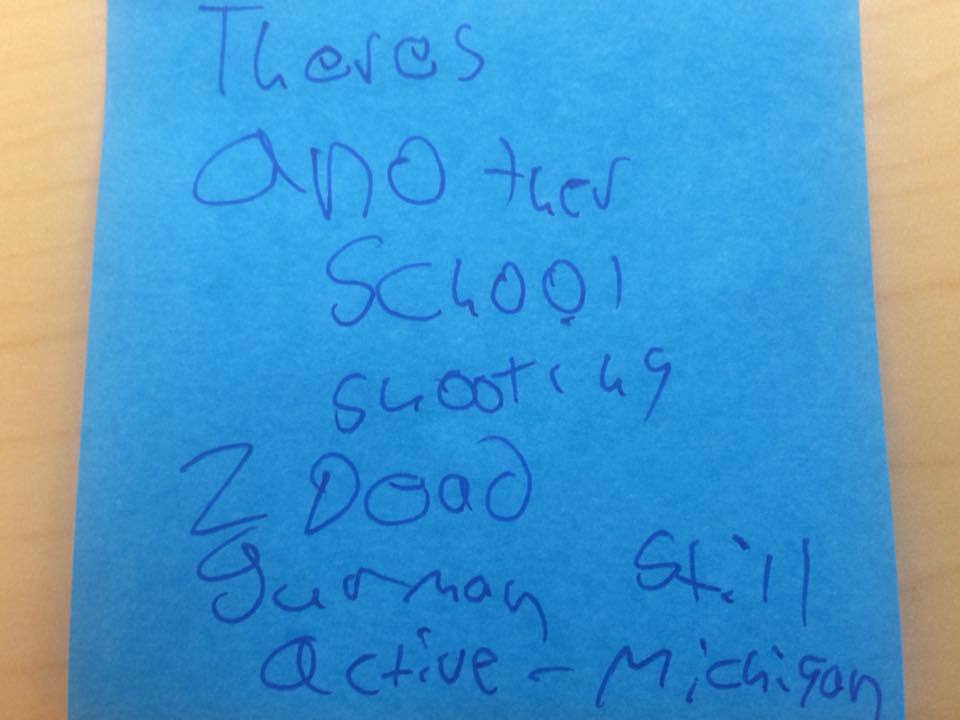 Theres
another
School
shooting
2 Dead
gunman still
active - Michigan